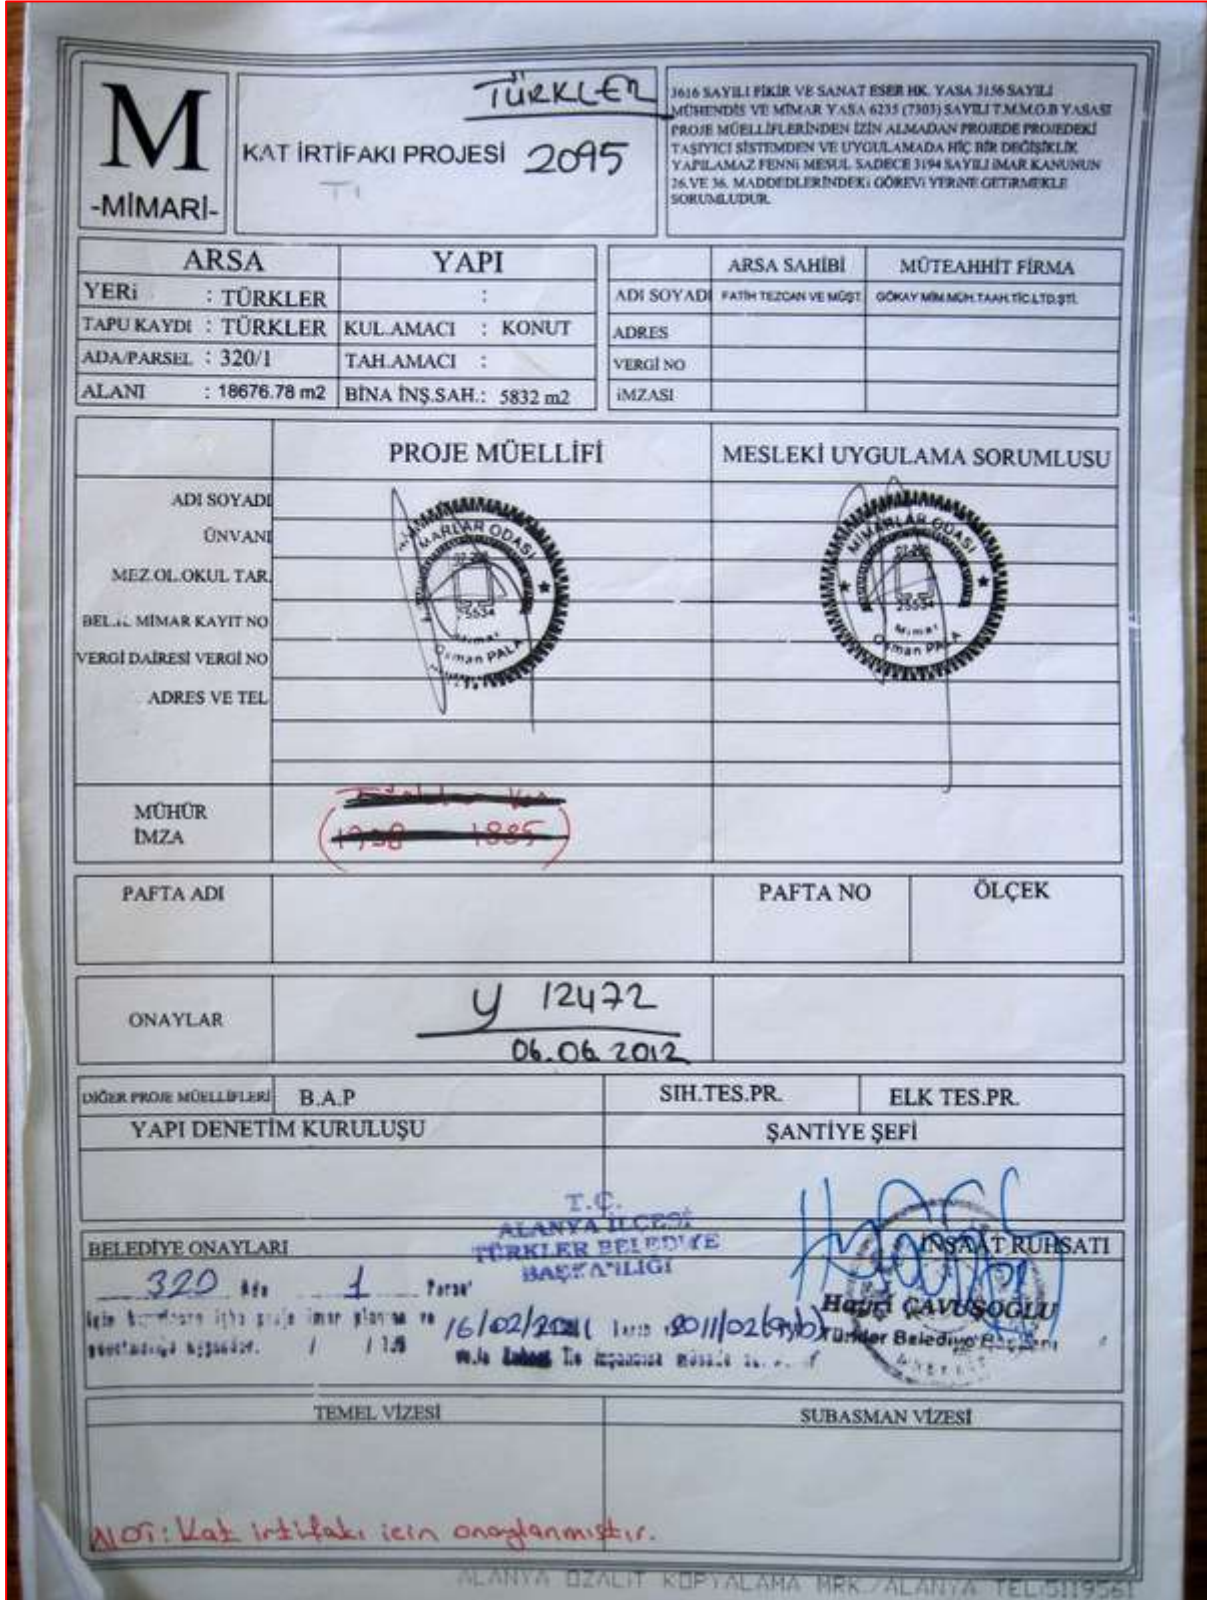 TÜRKLER
M
-MİMARİ-
KAT İRTİFAKI PROJESİ 2095
3616 SAYILI FİKİR VE SANAT ESER HK. YASA 3156 SAYILI
MÜHENDİS VE MİMAR YASA 6235 (7303) SAYILI T.M.M.O.B YASASI
PROJE MÜELLİFLERİNDEN İZİN ALMADAN PROJEDE PROJEDEKİ
TAŞIYICI SİSTEMDEN VE UYGULAMADA HİÇ BİR DEĞİŞİKLİK
YAPILAMAZ FENNi MESUL SADECE 3194 SAYILI iMAR KANUNUN
26.VE 36. MADDEDLERİNDEKi GÖREVi YERiNE GETiRMEKLE
SORUMLUDUR.
ARSA YAPI
YERi : TÜRKLER :
TAPU KAYDI : TÜRKLER KUL.AMACI : KONUT
ADA/PARSEL : 320/1 TAH.AMACI :
ALANI : 18676.78 m2 BİNA İNŞ.SAH.: 5832 m2
ARSA SAHİBİ MÜTEAHHİT FİRMA
ADI SOYADI FATİH TEZCAN VE MÜŞT. GÖKAY MİM.MÜH.TAAH.TİC.LTD.ŞTİ.
ADRES
VERGİ NO
iMZASI
PROJE MÜELLİFİ MESLEKİ UYGULAMA SORUMLUSU
ADI SOYADI
ÜNVANI
MEZ.OL.OKUL TAR.
BEL. MİMAR KAYIT NO
VERGİ DAİRESİ VERGİ NO
ADRES VE TEL
MARLAR ODASI
25534
Mimar
Osman PALA
MİMARLAR ODASI
25534
Mimar
Osman PALA
MÜHÜR
İMZA
1938 1885
PAFTA ADI PAFTA NO ÖLÇEK
ONAYLAR
y 12472
06.06.2012
DİĞER PROJE MÜELLİFLERİ B.A.P SIH.TES.PR. ELK TES.PR.
YAPI DENETİM KURULUŞU ŞANTİYE ŞEFİ
T.C.
ALANYA İLÇESİ
TÜRKLER BELEDİYE
BAŞKANLIĞI
BELEDİYE ONAYLARI İNŞAAT RUHSATI
320 Ada 1 Parsel
için proje imar planına ve
/ / 19
16/02/2011 2011/02
Hayri ÇAVUŞOĞLU
Türkler Belediye Başkanı
TEMEL VİZESİ SUBASMAN VİZESİ
NOT: Kat irtifakı için onaylanmıştır.
ALANYA OZALİT KOPYALAMA MRK./ALANYA TEL:5119561